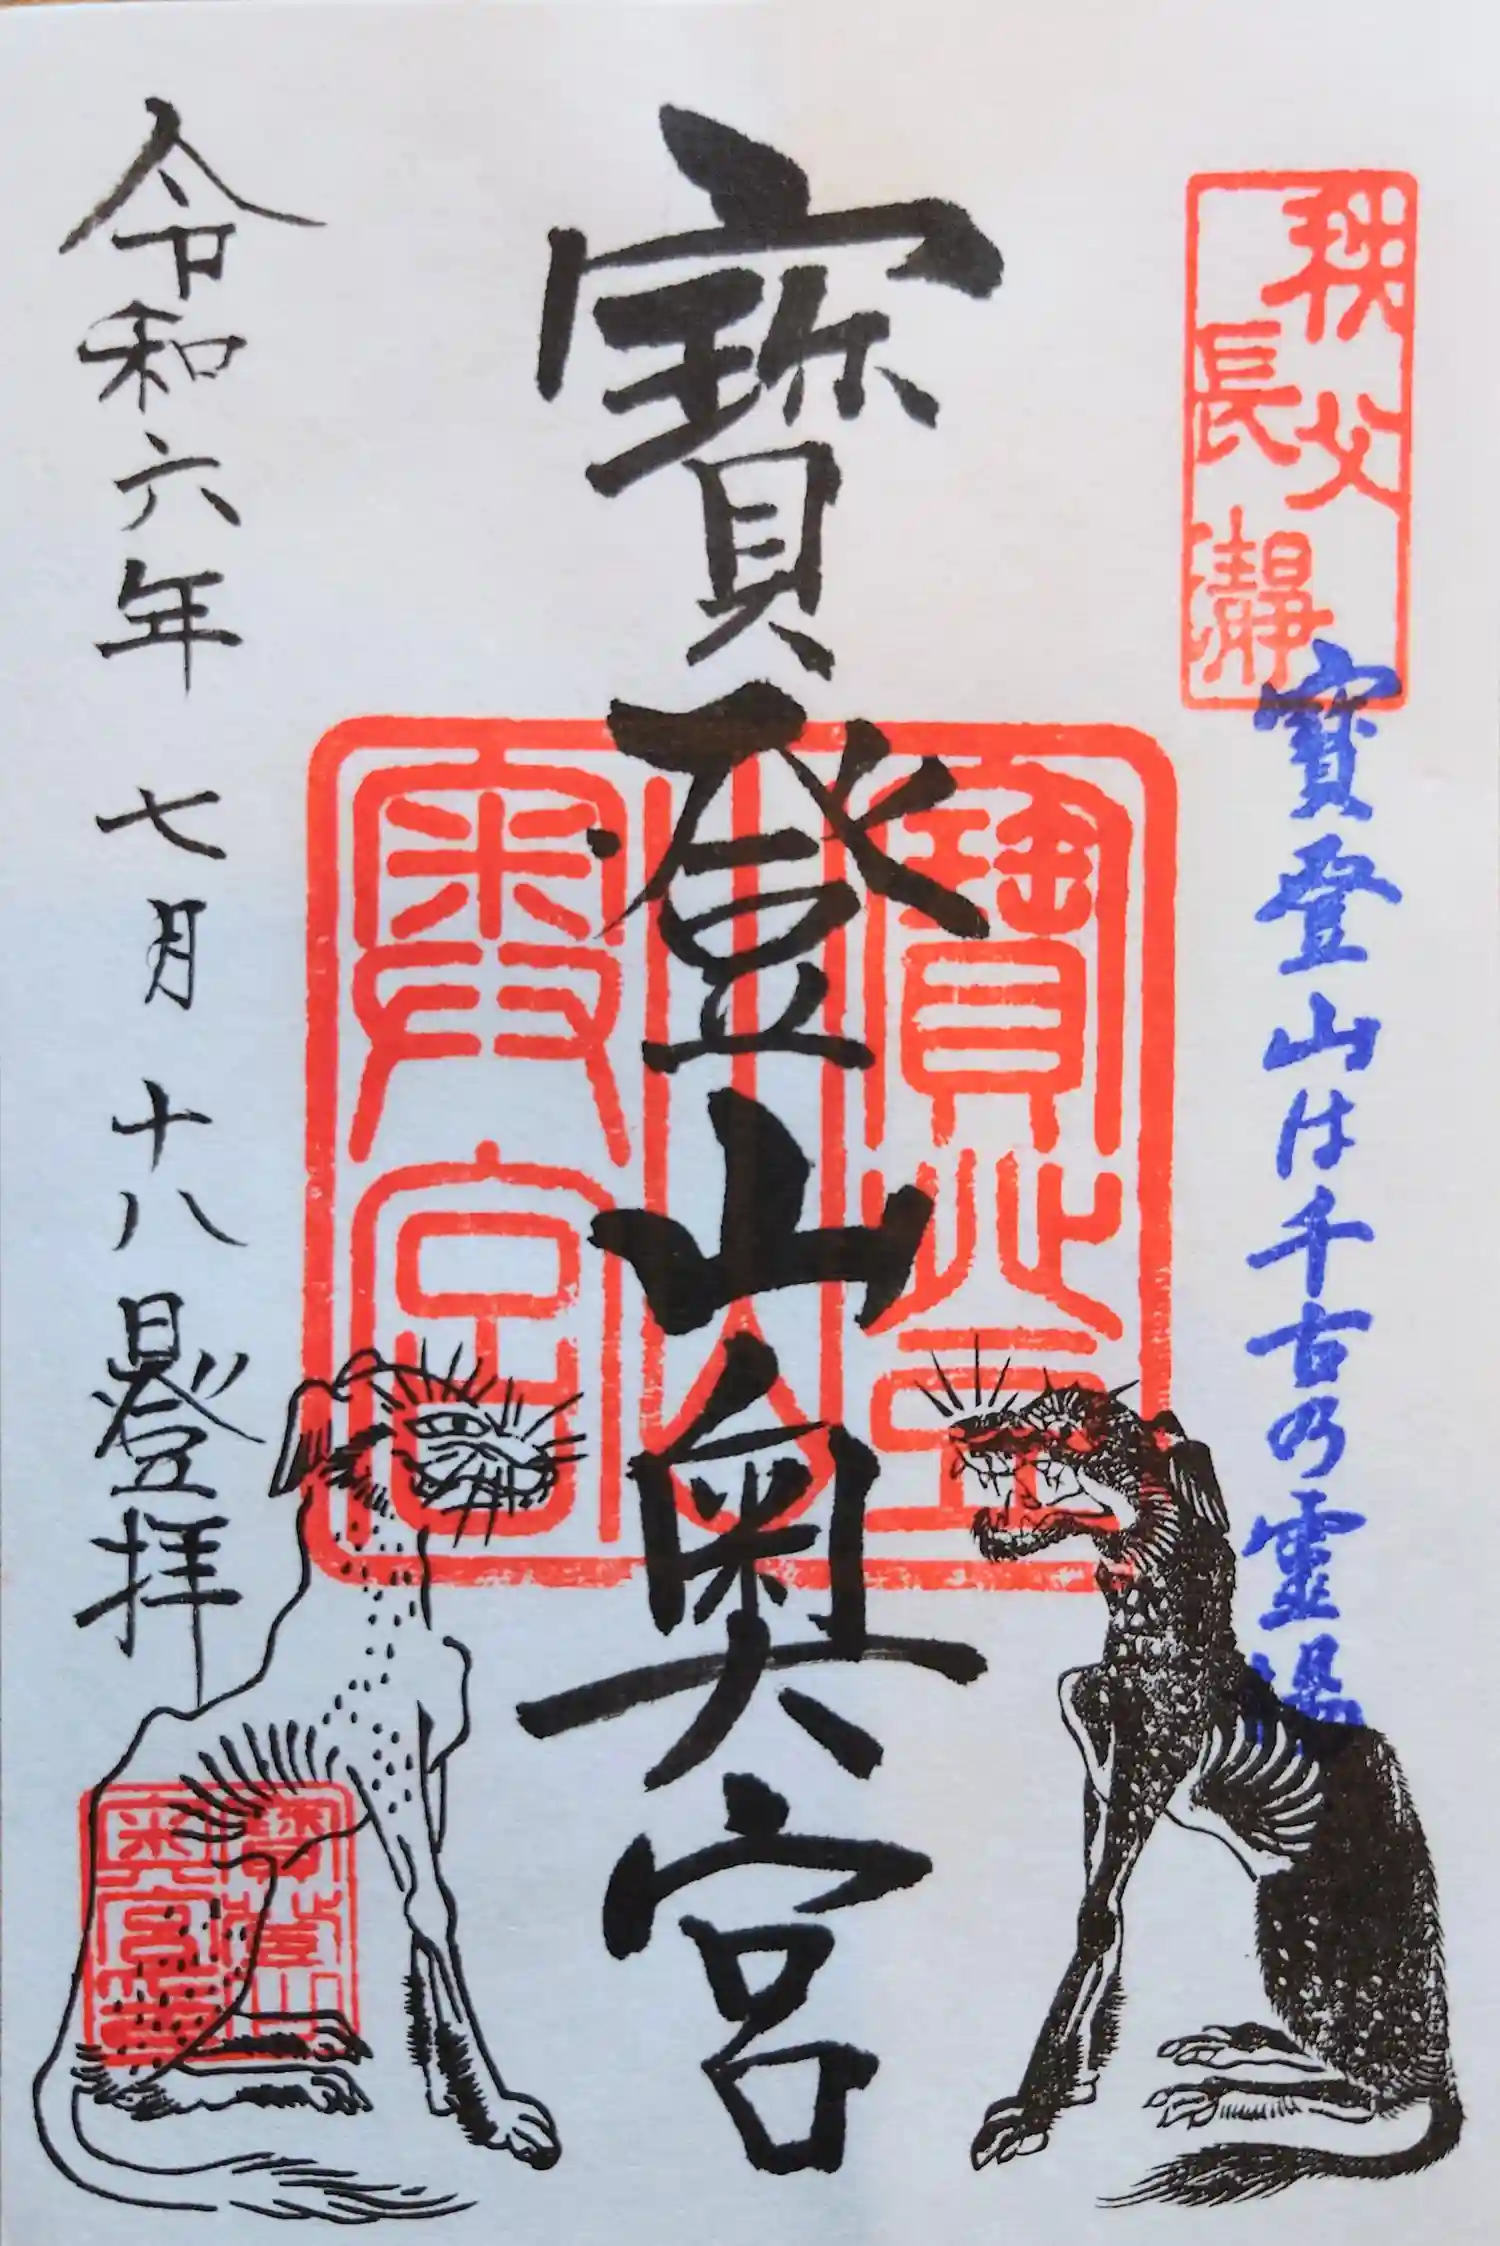 秩父
長瀞
寶登山は千古の霊場
寶登山奥宮
寶登山奥宮
令和六年 七月 十八日登拝
寶登山
奥宮